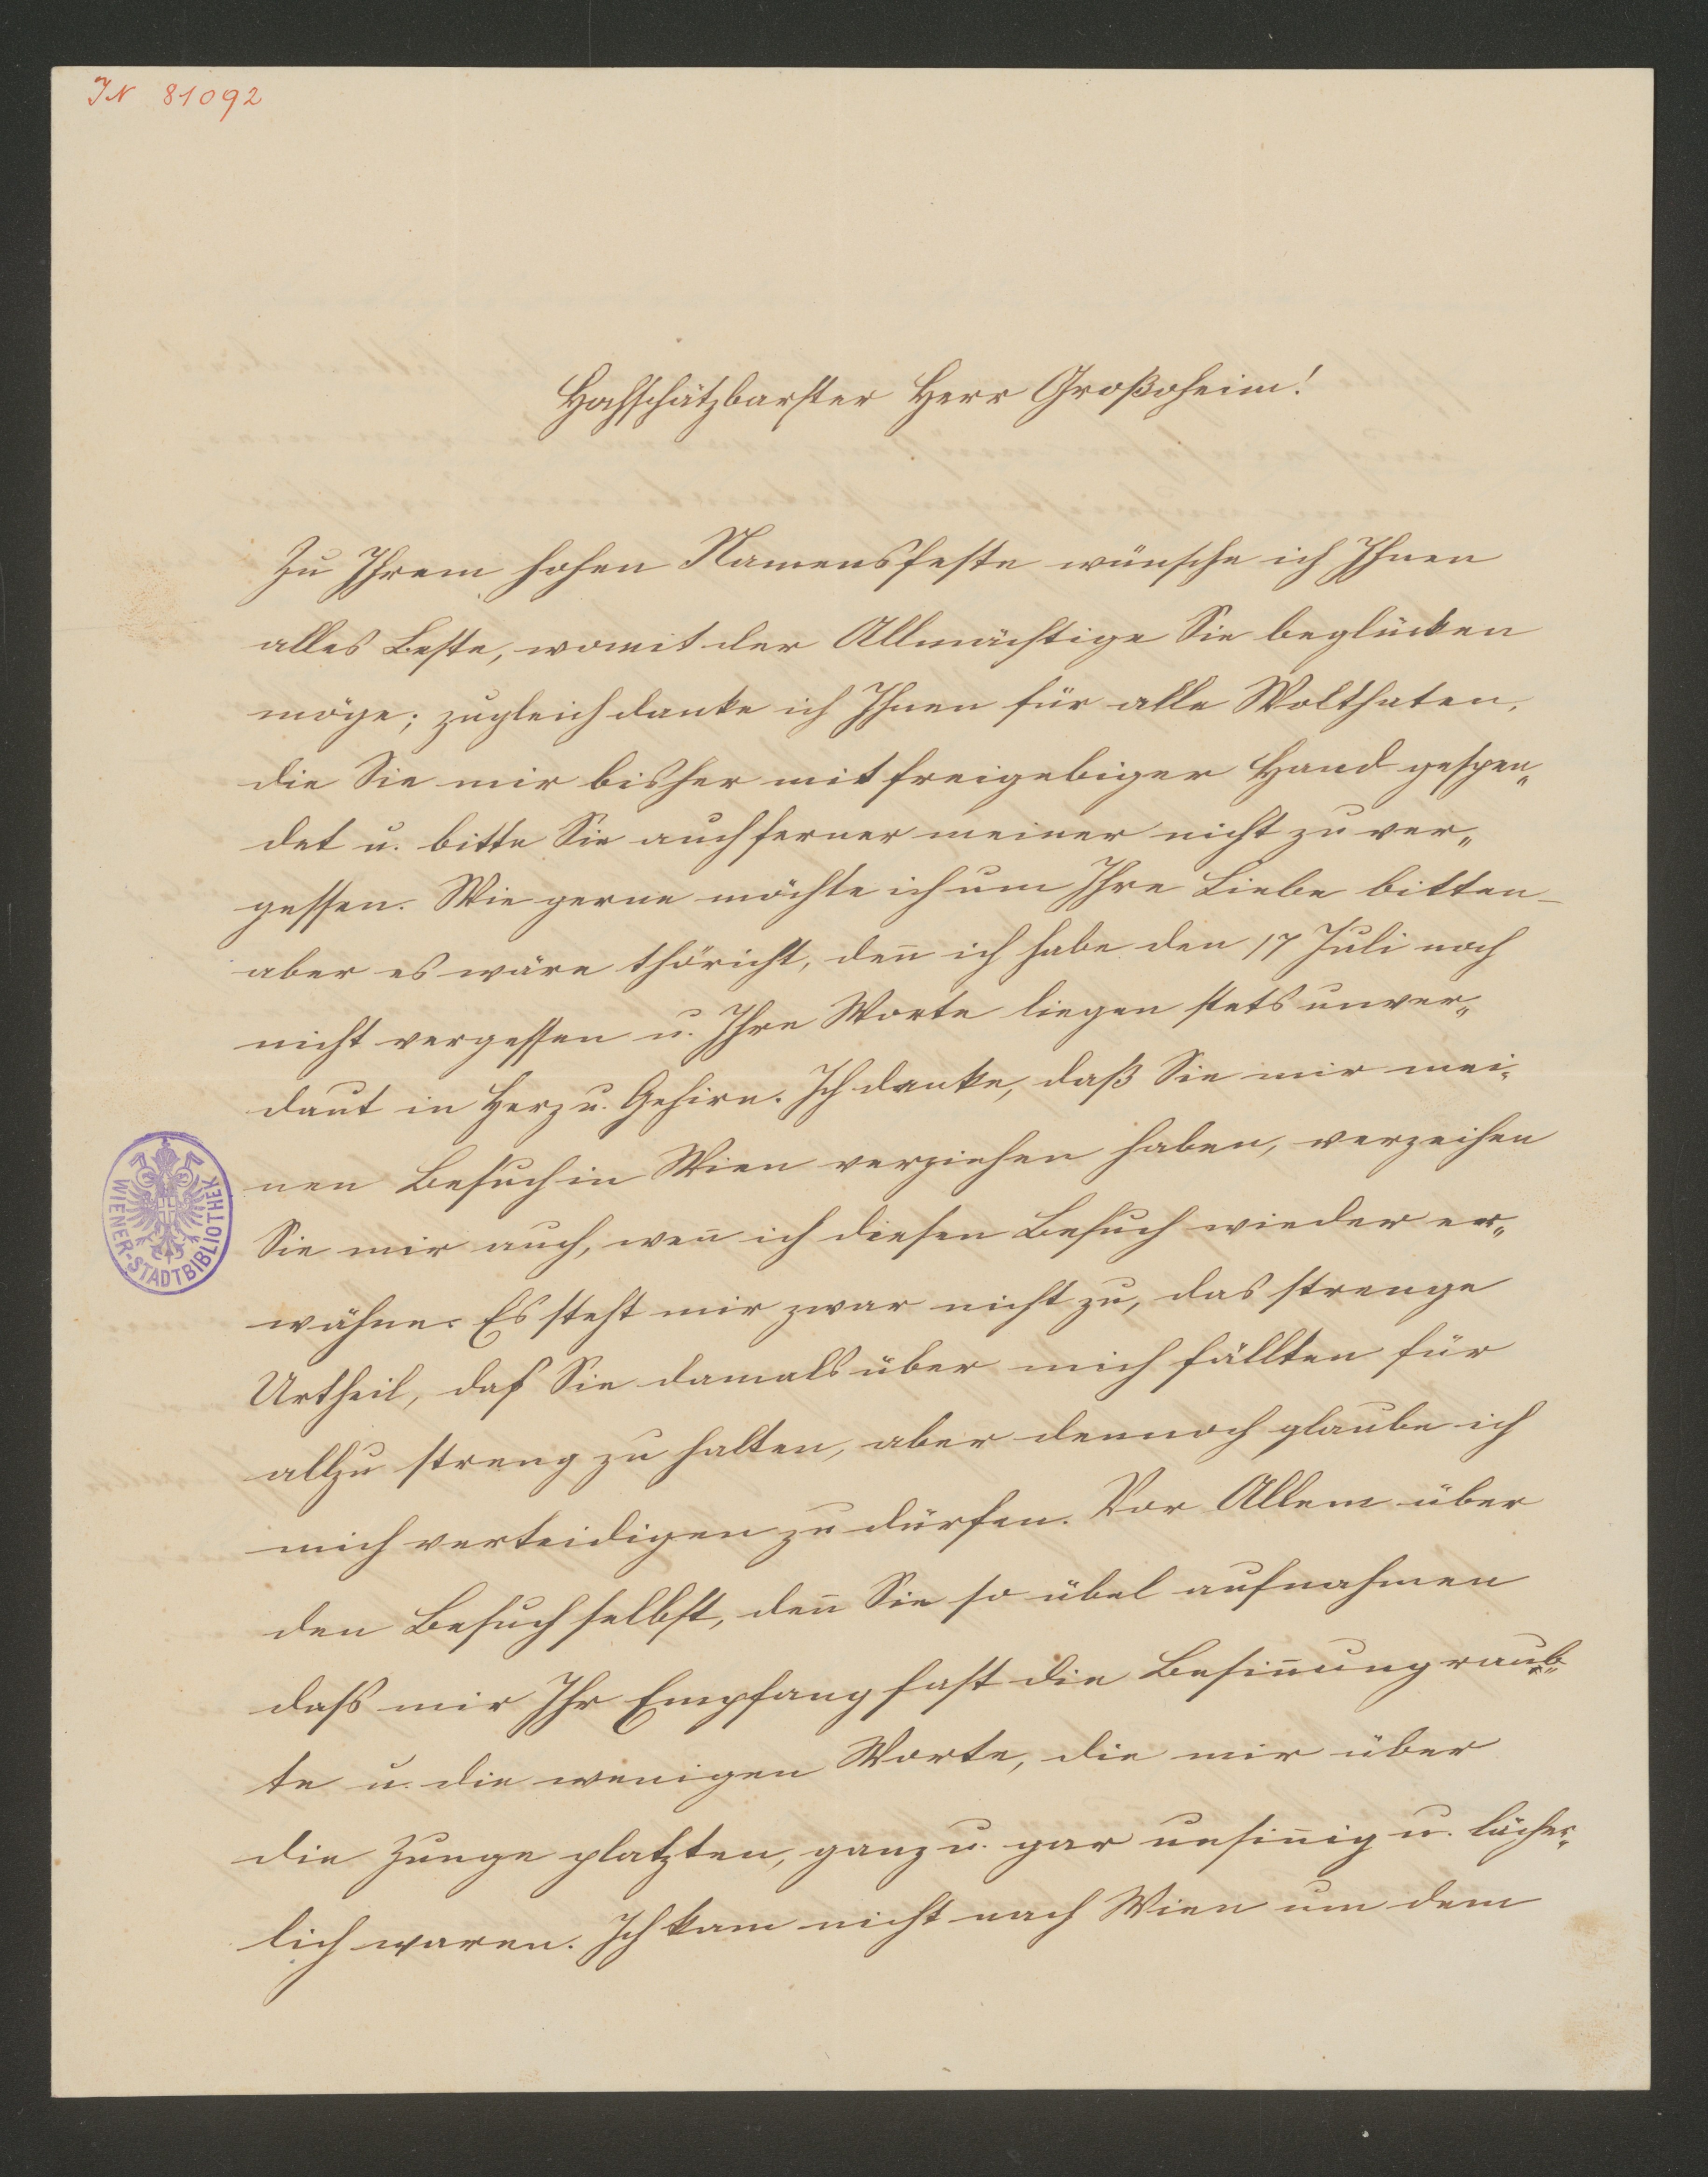 IN 81092
Hochschätzbarster Herr Großoheim!
Zu Ihrem hohen Namensfeste wünsche ich Ihnen
alles Beste, womit der Allmächtige Sie beglücken
möge; zugleich danke ich Ihnen für alle Wolthaten,
die Sie mir bisher mit freigebiger Hand gespen„
det u. bitte Sie auch ferner meiner nicht zu ver„
gessen. Wie gerne möchte ich um Ihre Liebe bitten –
aber es wäre thöricht, den̄ ich habe den 17 Juli noch
nicht vergessen u. Ihre Worte liegen stets unver„
daut in Herz u. Gehirn. Ich danke, daß Sie mir mei„
nen Besuch in Wien verziehen haben, verzeihen
Sie mir auch, wen̄ ich diesen Besuch wieder er„
wähne. Es steht mir zwar nicht zu, das strenge
Urtheil, daß Sie damals über mich fällten für
allzu streng zu halten, aber dennoch glaube ich
mich verteidigen zu dürfen. Vor Allem über
den Besuch selbst, den̄ Sie so übel aufnahmen
dass mir Ihr Empfang fast die Besin̄ung raub„
te u. die wenigen Worte, die mir über
die Zunge platzten, ganz u. gar unsin̄ig u. lächer„
lich waren. Ich kam nicht nach Wien um dem
WIENER-STADTBIBLIOTHEK